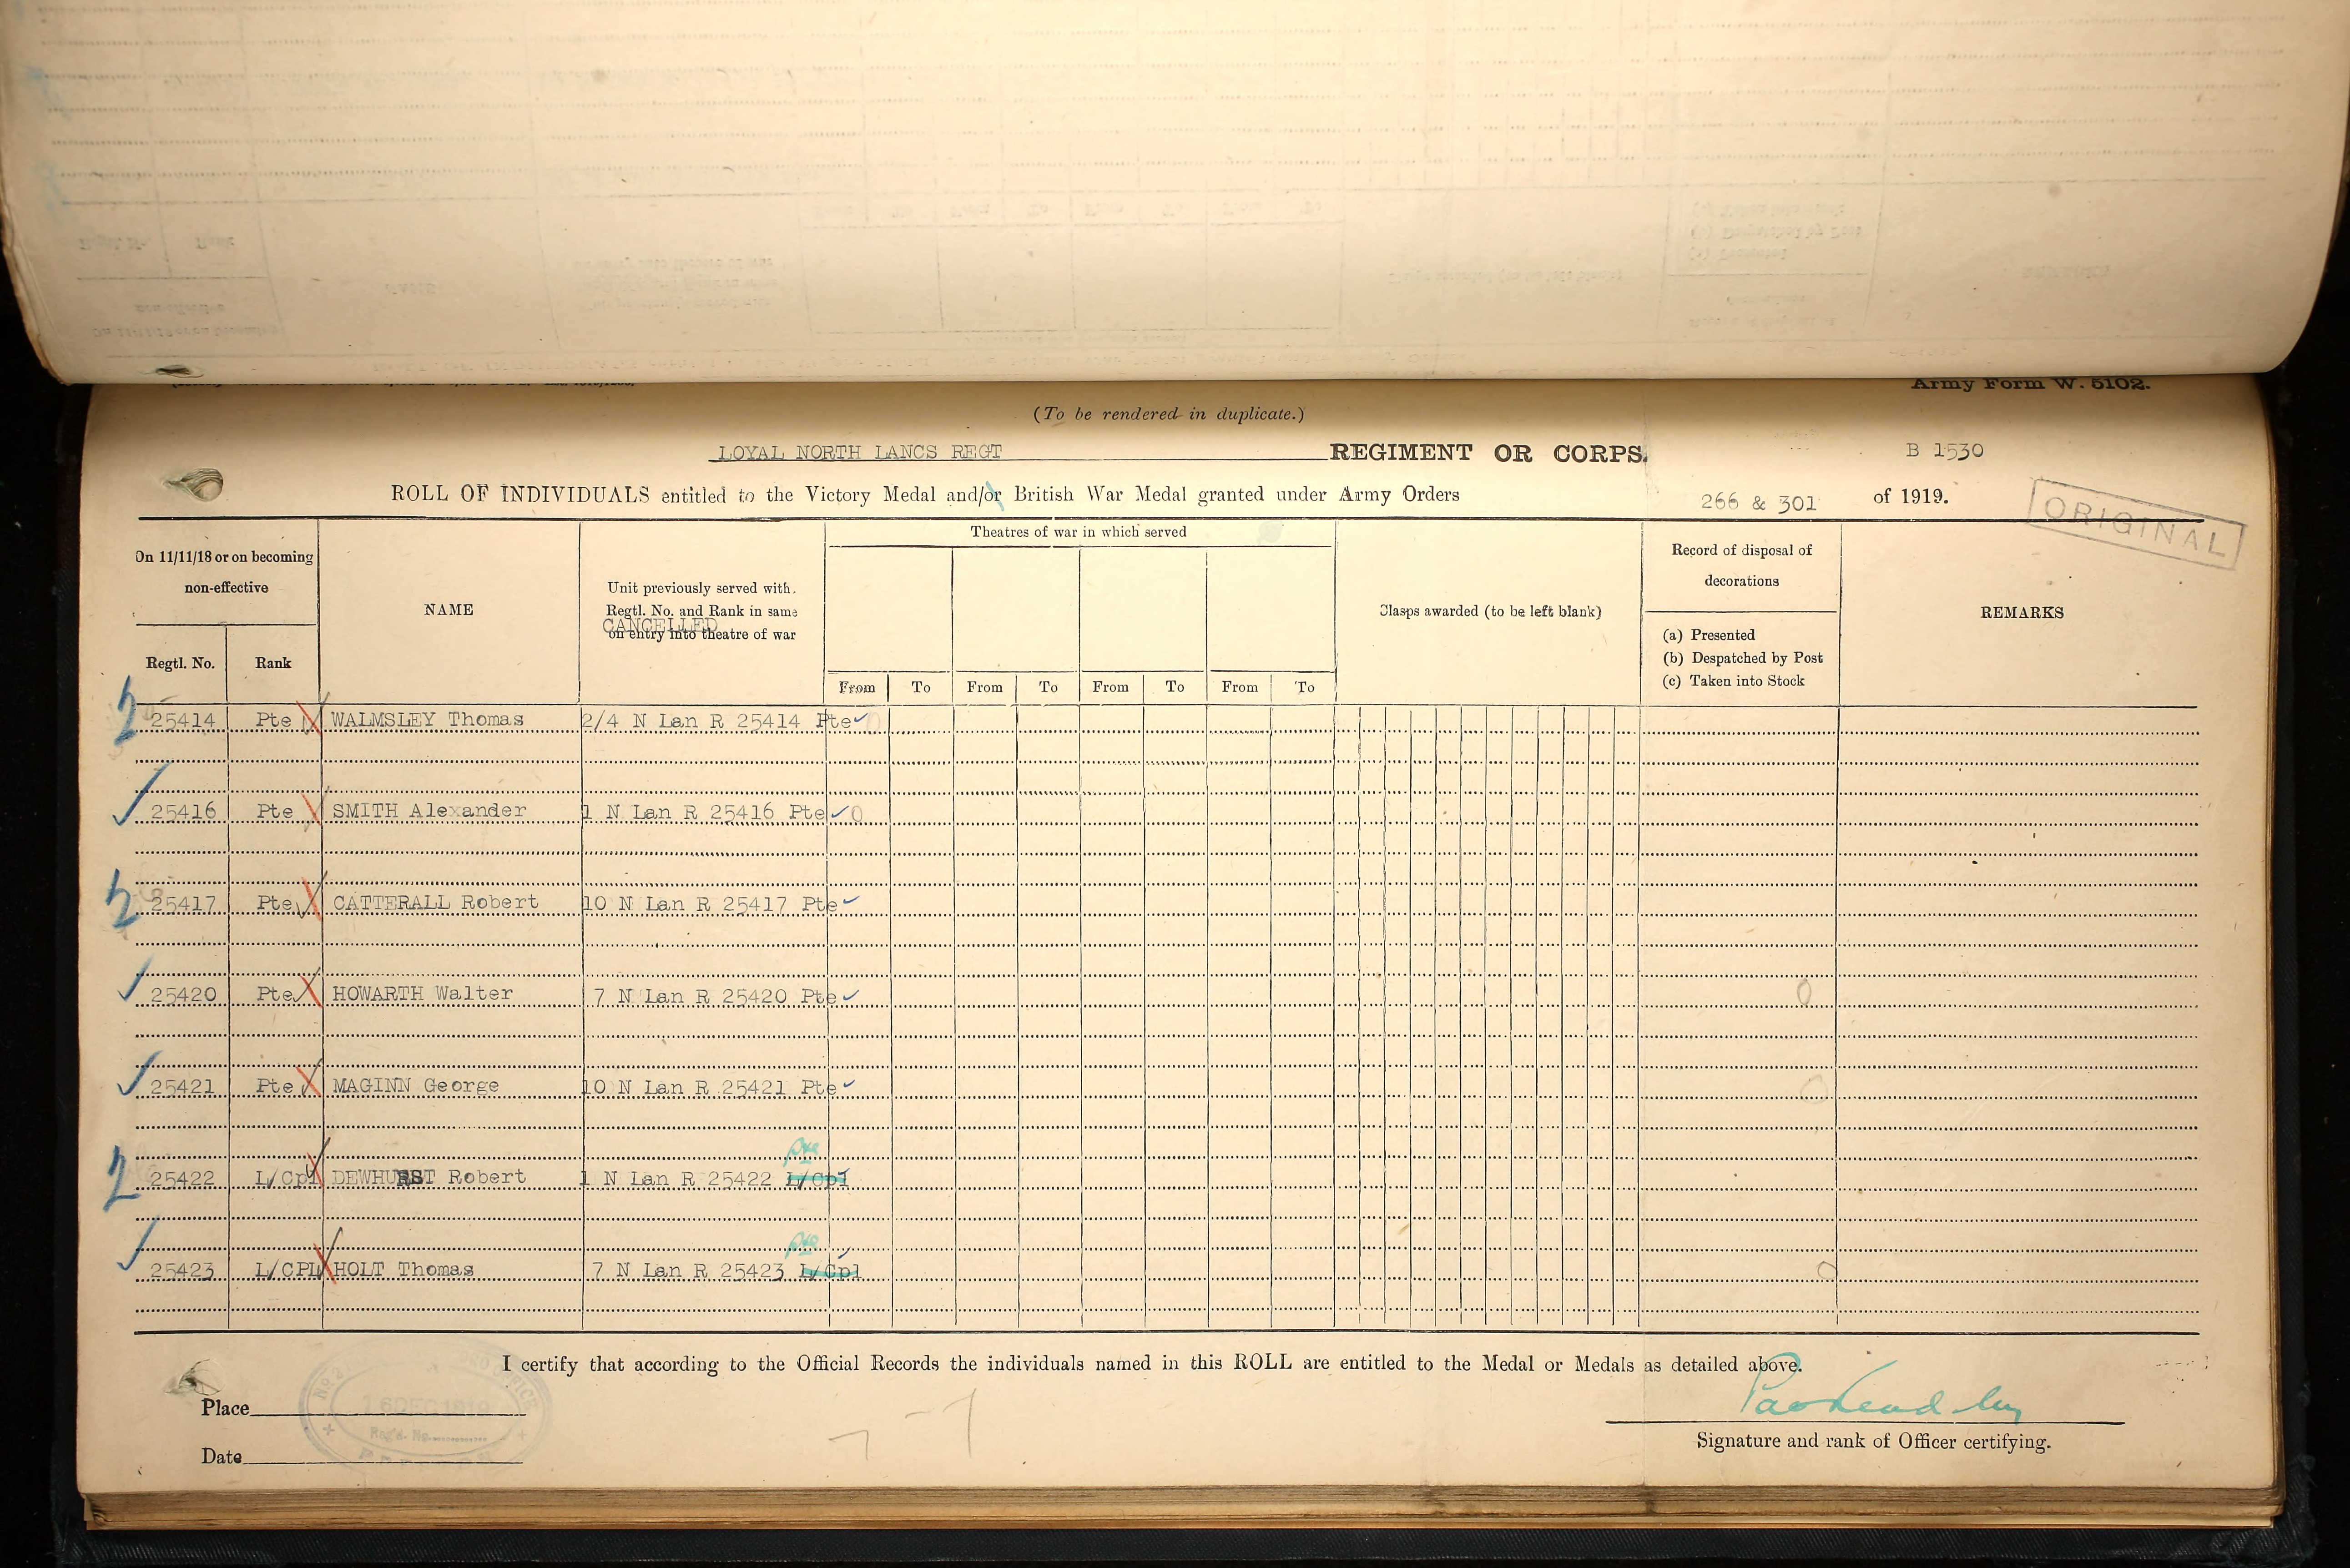 Army Form W. 5102.
(To be rendered in duplicate.)
LOYAL NORTH LANCS REGT REGIMENT OR CORPS. B 1530
ROLL OF INDIVIDUALS entitled to the Victory Medal and/or British War Medal granted under Army Orders 266 & 301 of 1919.
ORIGINAL
On 11/11/18 or on becoming
non-effective
Regtl. No. Rank
NAME
Unit previously served with.
Regtl. No. and Rank in same
CANCELLED
on entry into theatre of war
Theatres of war in which served
From To From To From To From To
Clasps awarded (to be left blank)
Record of disposal of
decorations
(a) Presented
(b) Despatched by Post
(c) Taken into Stock
REMARKS
2 25414 Pte WALMSLEY Thomas 2/4 N Lan R 25414 Pte
25416 Pte SMITH Alexander 1 N Lan R 25416 Pte
2 25417 Pte CATTERALL Robert 10 N Lan R 25417 Pte
25420 Pte HOWARTH Walter 7 N Lan R 25420 Pte
25421 Pte MAGINN George 10 N Lan R 25421 Pte
pte
2 25422 L/Cpl DEWHURST Robert 1 N Lan R 25422 L/Cpl
pte
25423 L/CPL HOLT Thomas 7 N Lan R 25423 L/Cpl
I certify that according to the Official Records the individuals named in this ROLL are entitled to the Medal or Medals as detailed above.
Place
16 DEC 1919
Regd. No.
Date
Signature and rank of Officer certifying.